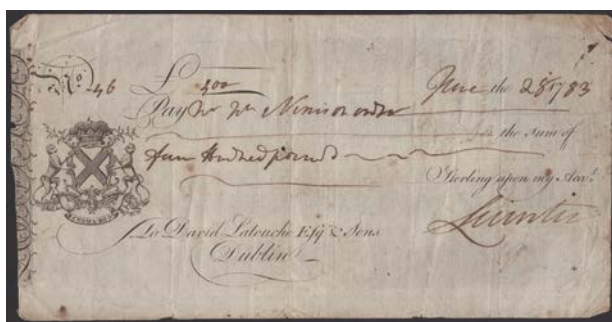 No. 46 £ 400 June the 28 1783
Pay or order
the Sum of
four Hundred pounds
Sterling upon my Acct.
CROM A BOO
Leinster
To David Latouche Esqr & Sons
Dublin